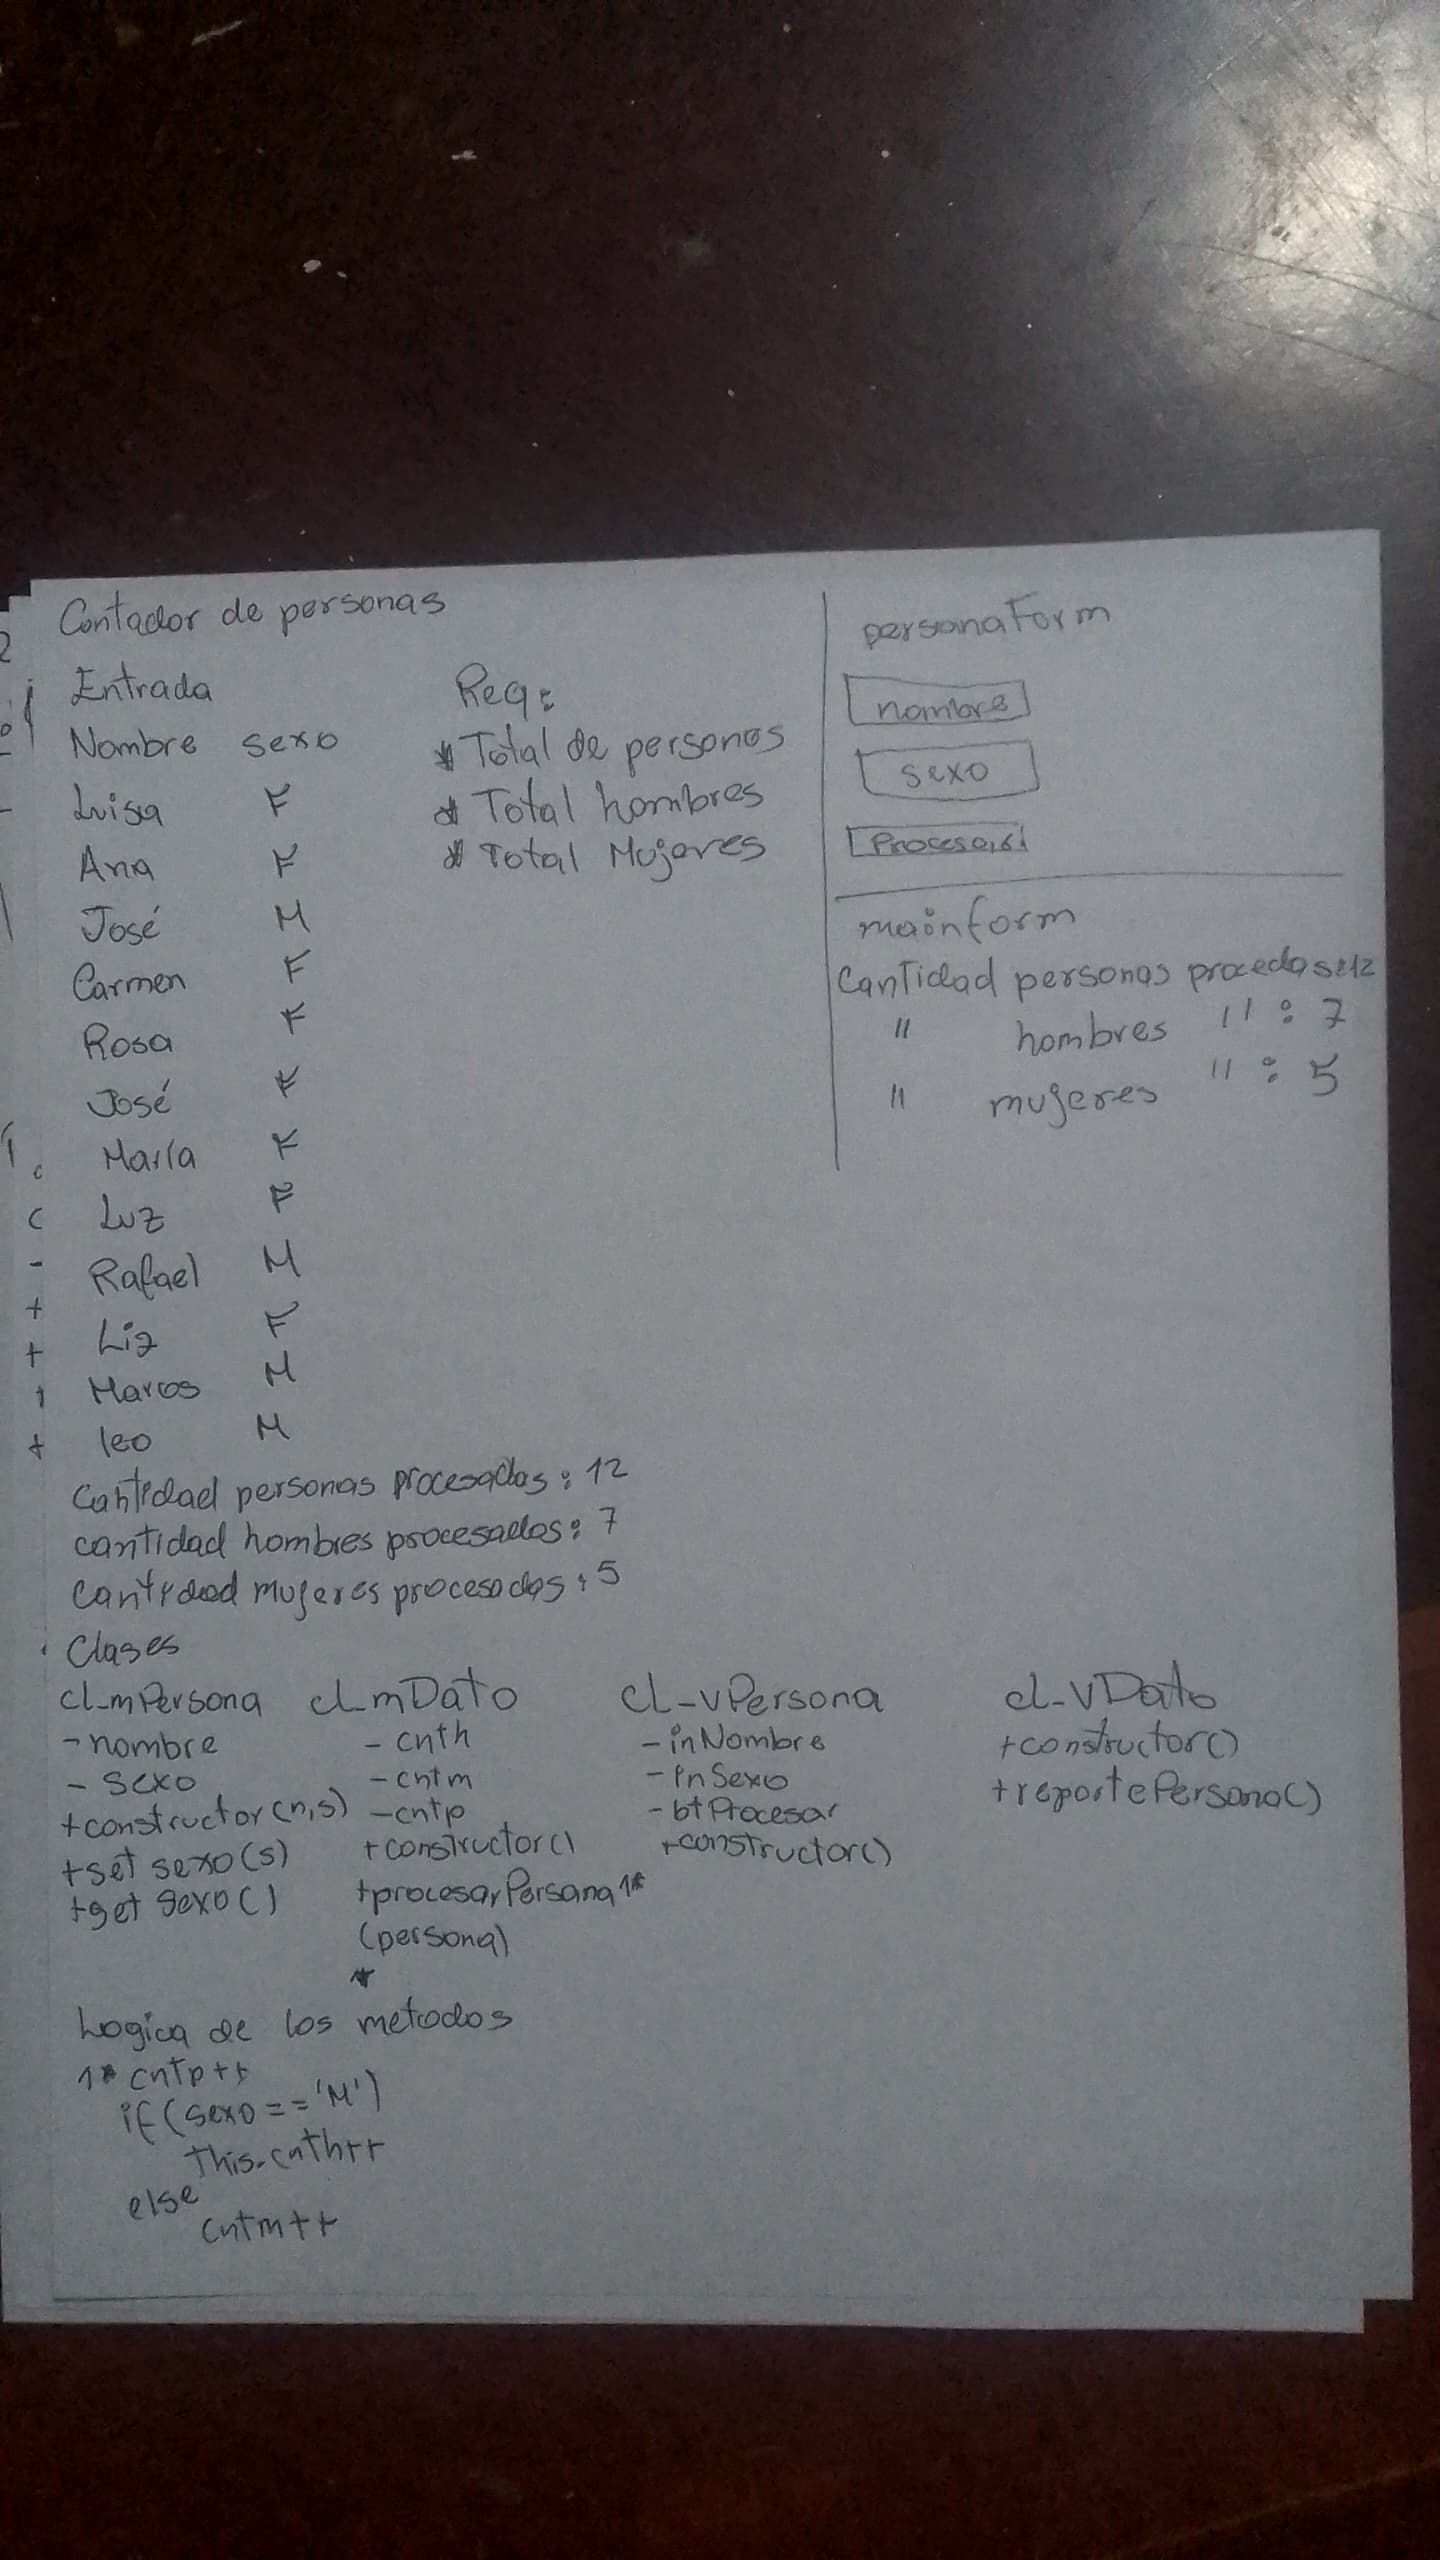 Contador de personas
Entrada
Nombre sexo
Luisa F
Ana F
José M
Carmen F
Rosa F
José F
María F
Luz F
Rafael M
Liz F
Marcos M
leo M
Req:
* Total de personas
* Total hombres
* Total Mujeres
personaForm
nombre
sexo
Procesar
mainform
Cantidad personas procedas: 12
" hombres " : 7
" mujeres " : 5
Cantidad personas procesadas : 12
cantidad hombres procesados : 7
Cantidad mujeres procesadas : 5
Clases
cl_mPersona
- nombre
- sexo
+constructor(n,s)
+set sexo(s)
+get sexo()
cl_mDato
- cnth
- cntm
- cntp
+constructor()
+procesarPersona 1*
(persona)
*
cl_vPersona
- inNombre
- inSexo
- btProcesar
+constructor()
cl_vDato
+constructor()
+reportePersona()
Logica de los metodos
1* cntp++
if(sexo=='M')
this.cnth++
else
cntm++